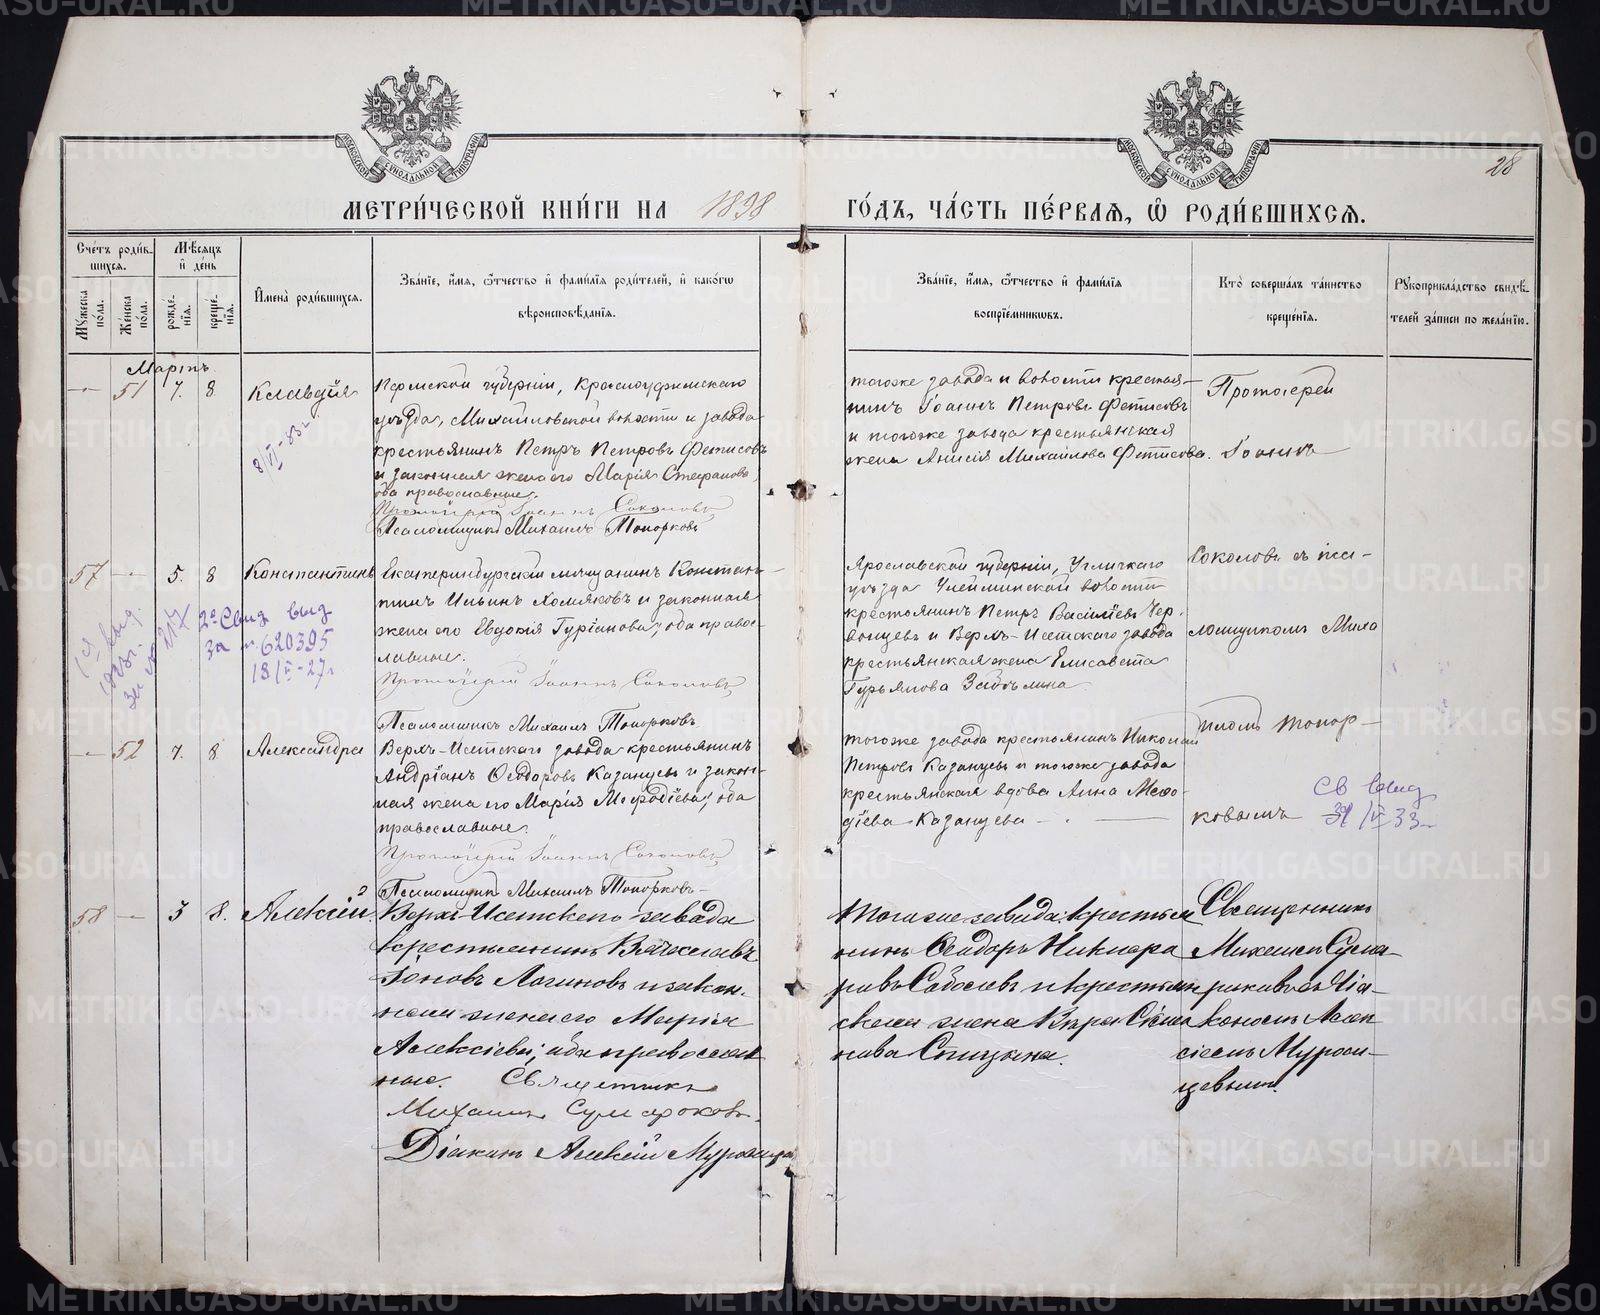 28
МЕТРИ́ЧЕСКОЙ КНИ́ГИ НА 1898 ГО́ДЪ, ЧА́СТЬ ПЕ́РВАЯ, Ѽ РОДИ́ВШИХСЯ.
Сче́тъ роди́вшихся.
Му́жеска по́ла.
Же́нска по́ла.
Мѣ́сяцъ и҆ де́нь
рожде́нїя.
креще́нїя.
И҆мена̀ роди́вшихся.
Зва́нїе, и҆́мя, ѻ҆́тчество и҆ фами́лїя роди́телей, и҆ како́гѡ
вѣроисповѣ́данїя.
Зва́нїе, и҆́мя, ѻ҆́тчество и҆ фами́лїя
воспрїе́мниковъ.
Кто̀ соверша́лъ та́инство
креще́нїя.
Рꙋкоприкла́дство свидѣ́-
телей за́писи по жела́нїю.
Мартъ.
51 7. 8 Клавдія
Пермской губерніи, Красноуфимскаго
уѣзда, Михайловской волости и завода
крестьянинъ Петръ Петровъ Фетисовъ
и законная жена его Марія Стефанова,
оба православные.
Протоіерей Іоаннъ Соколовъ
Псаломщикъ Михаилъ Топорковъ
тогоже завода и волости крестья-
нинъ Іоаннъ Петровъ Фетисовъ
и тогоже завода крестьянская
жена Анисія Михайлова Фетисова.
Протоіерей
Іоаннъ
57 5. 8 Константинъ
Екатеринбургскій мѣщанинъ Констан-
тинъ Ильинъ Хомяковъ и законная
жена его Евдокія Гуріанова, оба право-
славные.
Протоіерей Іоаннъ Соколовъ
Псаломщикъ Михаилъ Топорковъ
Ярославской губерніи, Угличкаго
уѣзда Улейминской волости
крестьянинъ Петръ Васильевъ Чер-
вищевъ и Верхъ-Исетскаго завода
крестьянская жена Елисавета
Гурьянова Забѣлина.
Соколовъ съ пса-
ломщикомъ Миха
2е Свид выд
за № 620395
13/V-27г
52 7. 8 Александра
Верхъ-Исетскаго завода крестьянинъ
Андріанъ Ѳеодоровъ Казанцевъ и закон-
ная жена его Марія Меѳодіева, оба
православные.
Протоіерей Іоаннъ Соколовъ
Псаломщикъ Михаилъ Топорковъ
тогоже завода крестьянинъ Николай
Петровъ Казанцевъ и тогоже завода
крестьянская вдова Анна Меѳо-
діева Казанцева
иломъ Топор-
ковымъ
Св выд
58 3 8. Алексій
Верхъ-Исетскаго завода
крестьянинъ Вячеславъ
Іоновъ Логиновъ и закон-
ная жена его Марія
Алексіева; оба православ
ные. Священникъ
Михаилъ Сумароковъ.
Діаконъ Алексій Муромцевъ
Тогоже завода крестья
нинъ Ѳеодоръ Никано
ровъ Соболевъ и крестьян
ская жена Вѣра
нова Спицына.
Священникъ
Михаилъ Сума-
роковъ съ діа-
кономъ Алек
сіемъ Муром-
цевымъ